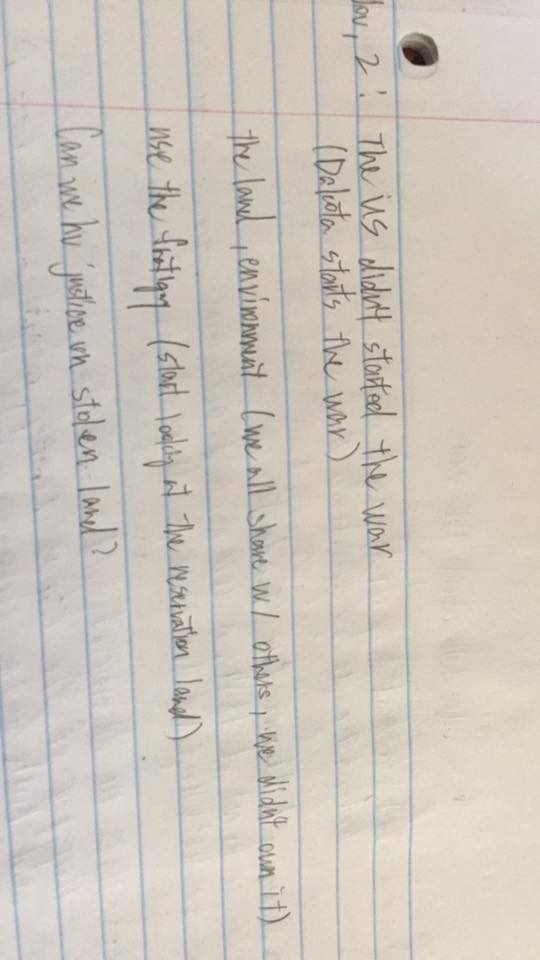 Nov, 2 : The US didn't started the war
(Dakota starts the war)
the land, environment (we all share w/ others, we didn't own it)
use the (start looking at the reservation land)
Can we hv justice on stolen land?